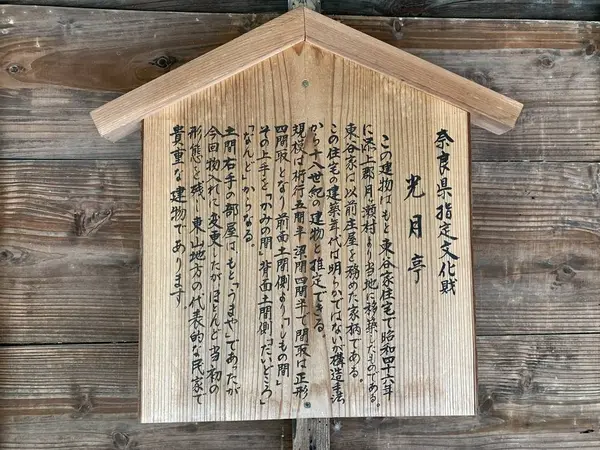 奈良県指定文化財
光月亭
この建物はもと東谷家住宅で昭和四十六年
に添上郡月ヶ瀬村より当地に移築したものである。
東谷家は以前庄屋を務めた家柄である。
この住宅の建築年代は明らかではないが構造手法
から十八世紀の建物と推定できる。
規模は桁行五間半 梁間四間半で間取は正形
四間取となり前面土間側より「しもの間」
その上手を「かみの間」背面土間側「だいどころ」
「なんど」からなる。
土間右手の部屋はもと「うまや」であったが
今回物入れに変更したがほとんど当初の
形態を残し 東山地方の代表的な民家で
貴重な建物であります。